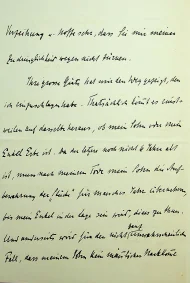 Verzeihung u. hoffe sehr, dass Sie mir meiner
Zudringlichkeit wegen nicht zürnen.
Ihre grosse Güte hat mir den Weg gezeigt, den
ich einzuschlagen habe. Thatsächlich kommt es einst-
weilen auf dasselbe heraus, ob mein Sohn oder mein
Enkel Erbe ist. Da der letztere noch nicht 6 Jahre alt
ist, muss nach meinem Tode mein Sohn die Auf-
bewahrung der "Stücke" für manches Jahr übernehmen,
bis mein Enkel in der Lage sein wird, dies zu thun.
Und andrerseits wird für den nicht ganz unwahrscheinlichen
Fall, dass meinem Sohn kein männlicher Nachkomme